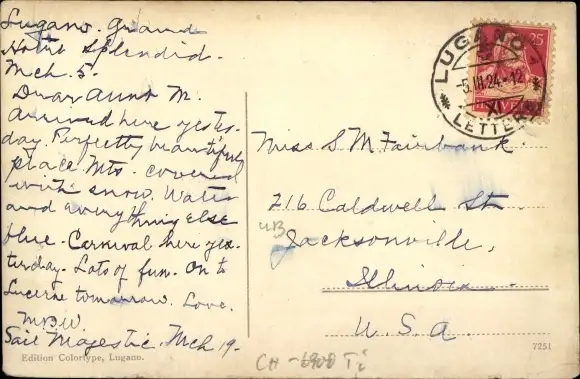 Lugano. Grand
Hotel Splendid.
Mch. 5.
Dear Aunt M.
Arrived here yester-
day. Perfectly beautiful
place Mts. covered
with snow. Water
and everything else
blue. Carnival here yes-
terday. Lots of fun. On to
Lucerne tomorrow. Love.
M.B.W.
Sail Majestic. Mch 19-
Edition Colortype, Lugano.
25
HELVETIA
LUGANO 1
-5.III.24-12
XI
LETTERE
Miss S M Fairbank.
716 Caldwell St.
Jacksonville,
Illinois.
U.S.A.
7251
CH - 6900 Ti